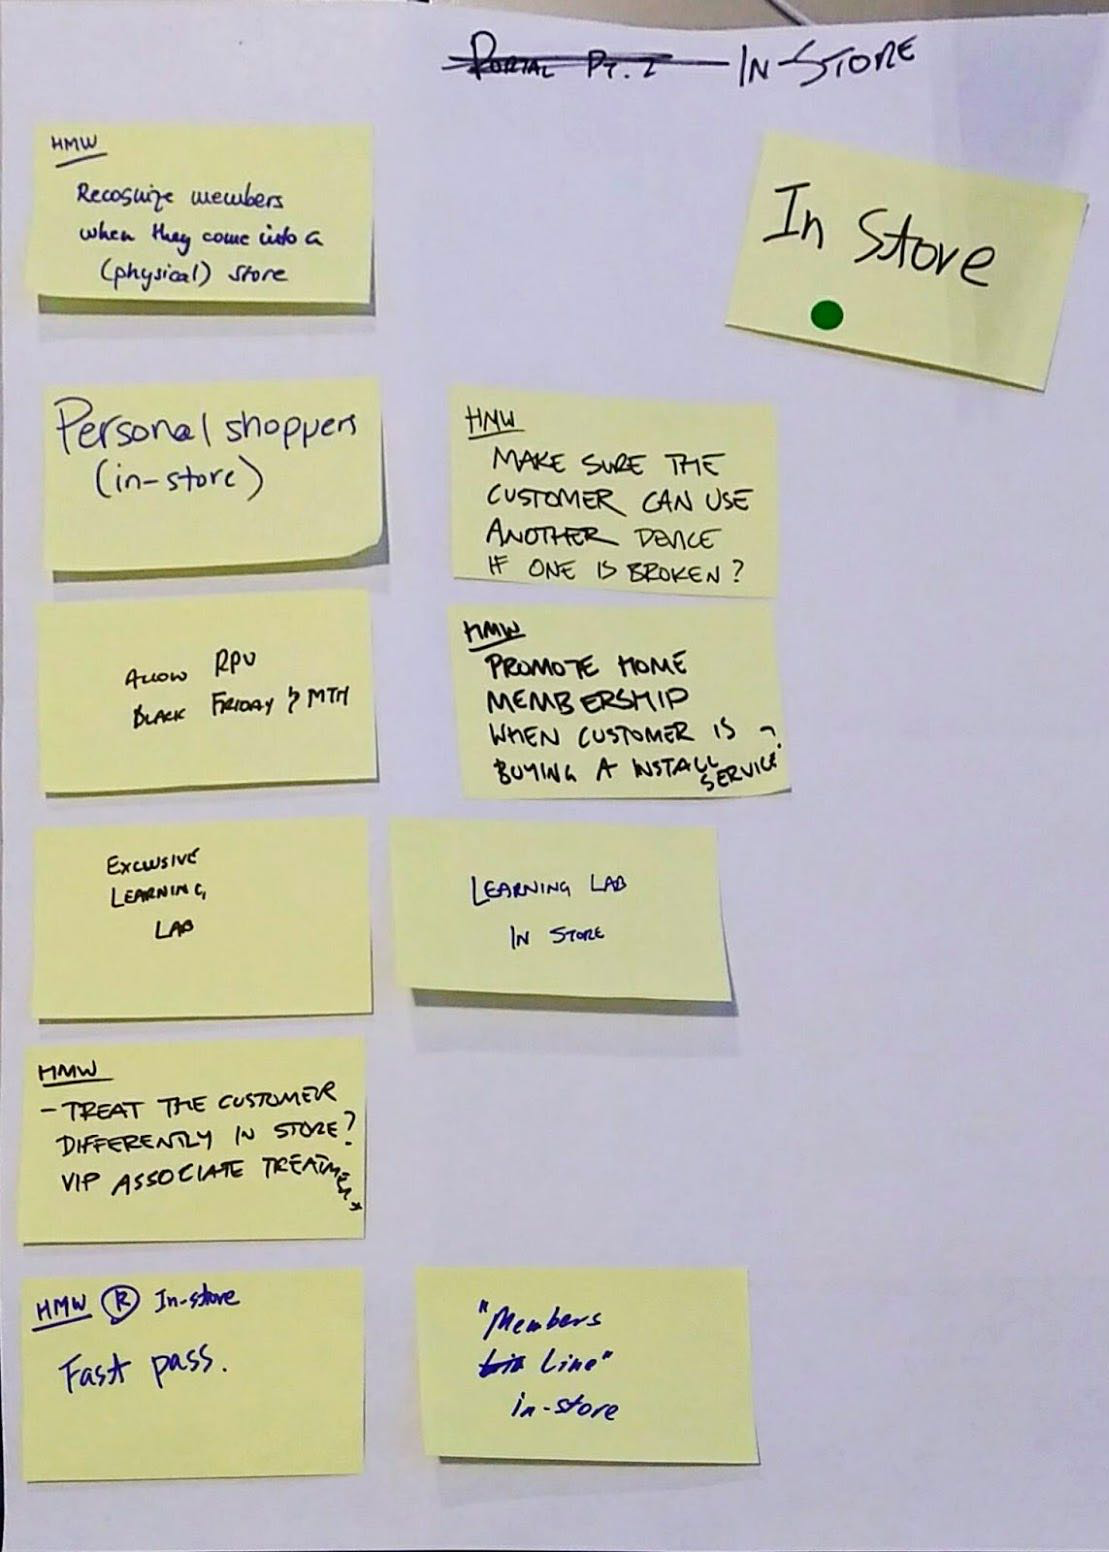 PORTAL PT. 2 IN-STORE
HMW
Recognize members
when they come into a
(physical) store
In Store
Personal shoppers
(in-store)
HMW
MAKE SURE THE
CUSTOMER CAN USE
ANOTHER DEVICE
IF ONE IS BROKEN?
ALLOW RPU
BLACK FRIDAY & MTH
HMW
PROMOTE HOME
MEMBERSHIP
WHEN CUSTOMER IS
BUYING A INSTALL
SERVICE?
EXCLUSIVE
LEARNING
LAB
LEARNING LAB
IN STORE
HMW
- TREAT THE CUSTOMER
DIFFERENTLY IN STORE?
VIP ASSOCIATE TREATMENT
HMW R In-store
Fast pass.
"Members
Line"
in-store